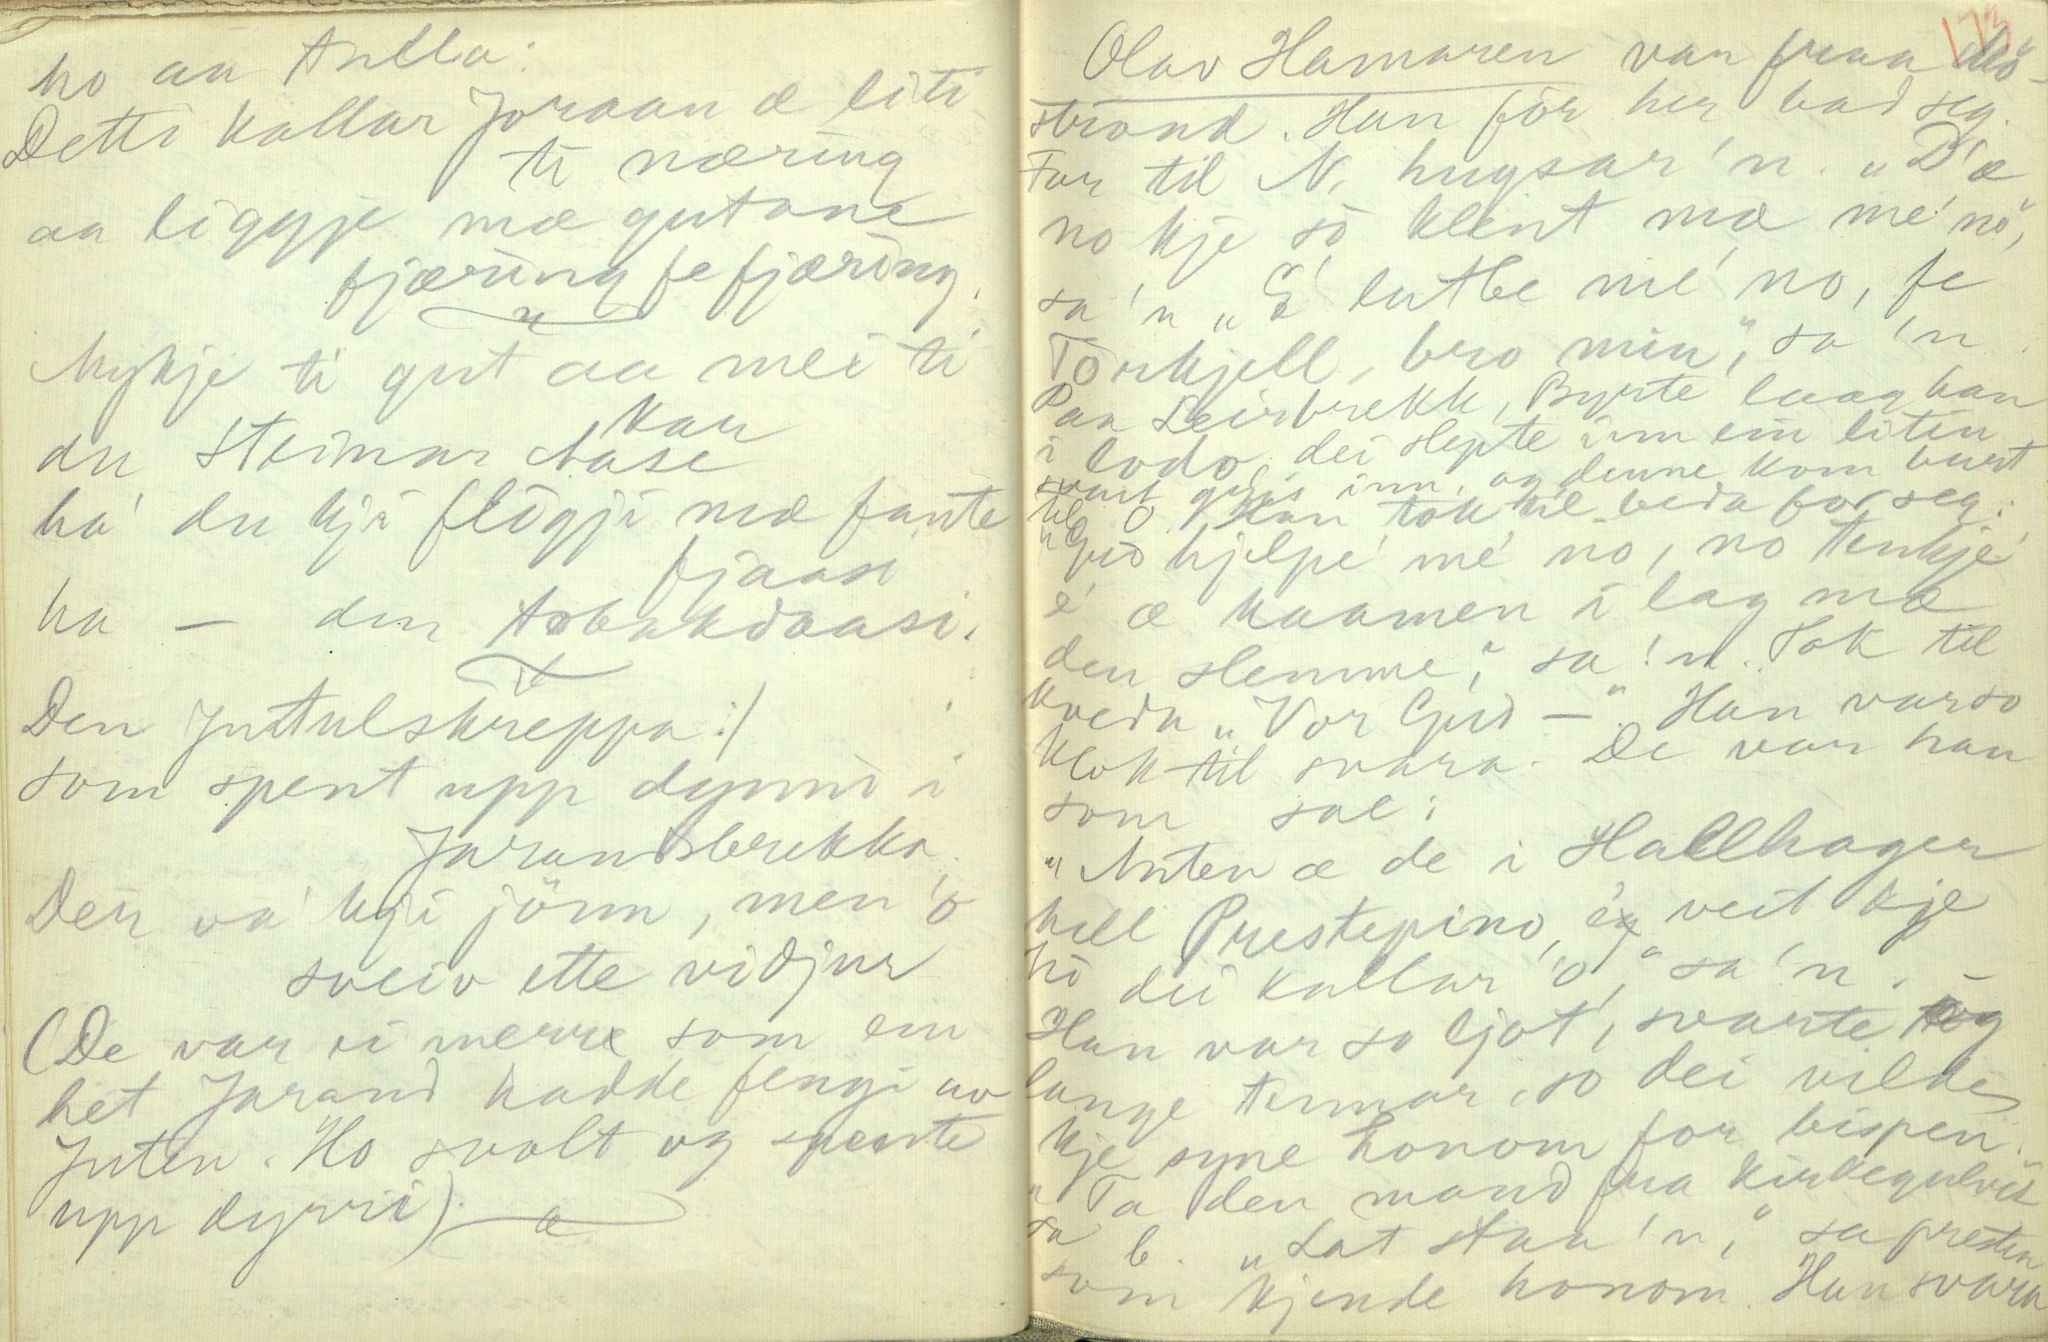 ho aa Tulla:
Detti kallar Joraan æ liti
ti næring
aa liggje mæ gutane
fjæring fe fjæring.
Mykje ti gut aa mei ti
du Steinar Aase
kan
ha' du kji fligji mæ fante
fjaase
ha — den Tobakdaasi.
Den Juttulskreppa:/
som spent upp dynni i
Jarandsbrekka.
Den va' kji jönn, men 'o
sveiv ette vidjur
(De var ei merr som ein
het Jarand hadde fengi av
Juten. Ho svalt og spente
upp dynni)
173
Olav Hamaren var fraa Mo-
strand. Han fór her bad seg.
For til N. hugsar 'n. "D'æ
no kje so klent mæ me' no",
sa 'n "E' lutbe me' no, fe
Torkjell, bro min", sa 'n.
Paa Leirbrekk, Byrte laag han
i lodo, dei slepte inn ein liten
svart gris inn, og denne kom burt
til O. Han tok til beda for seg:
"Gud hjelpe' me' no, no tenkje'
e' æ kaamen i lag mæ
den slemme", sa 'n. Tok til
kveda "Vor Gud —" Han var so
klok til svara. De var han
som sae:
"Anten æ de i Hallhagen
hell Prestepino, eg veit kje
ho dei kallar 'o", sa 'n. —
Han var so ljot, svarte og
lange tennar, so dei vilde
kje syne honom for bispen.
"Ta den mand fra kirkegulvet"
sa b. "Lat staa 'n", sa presten
som kjende honom. Han svara